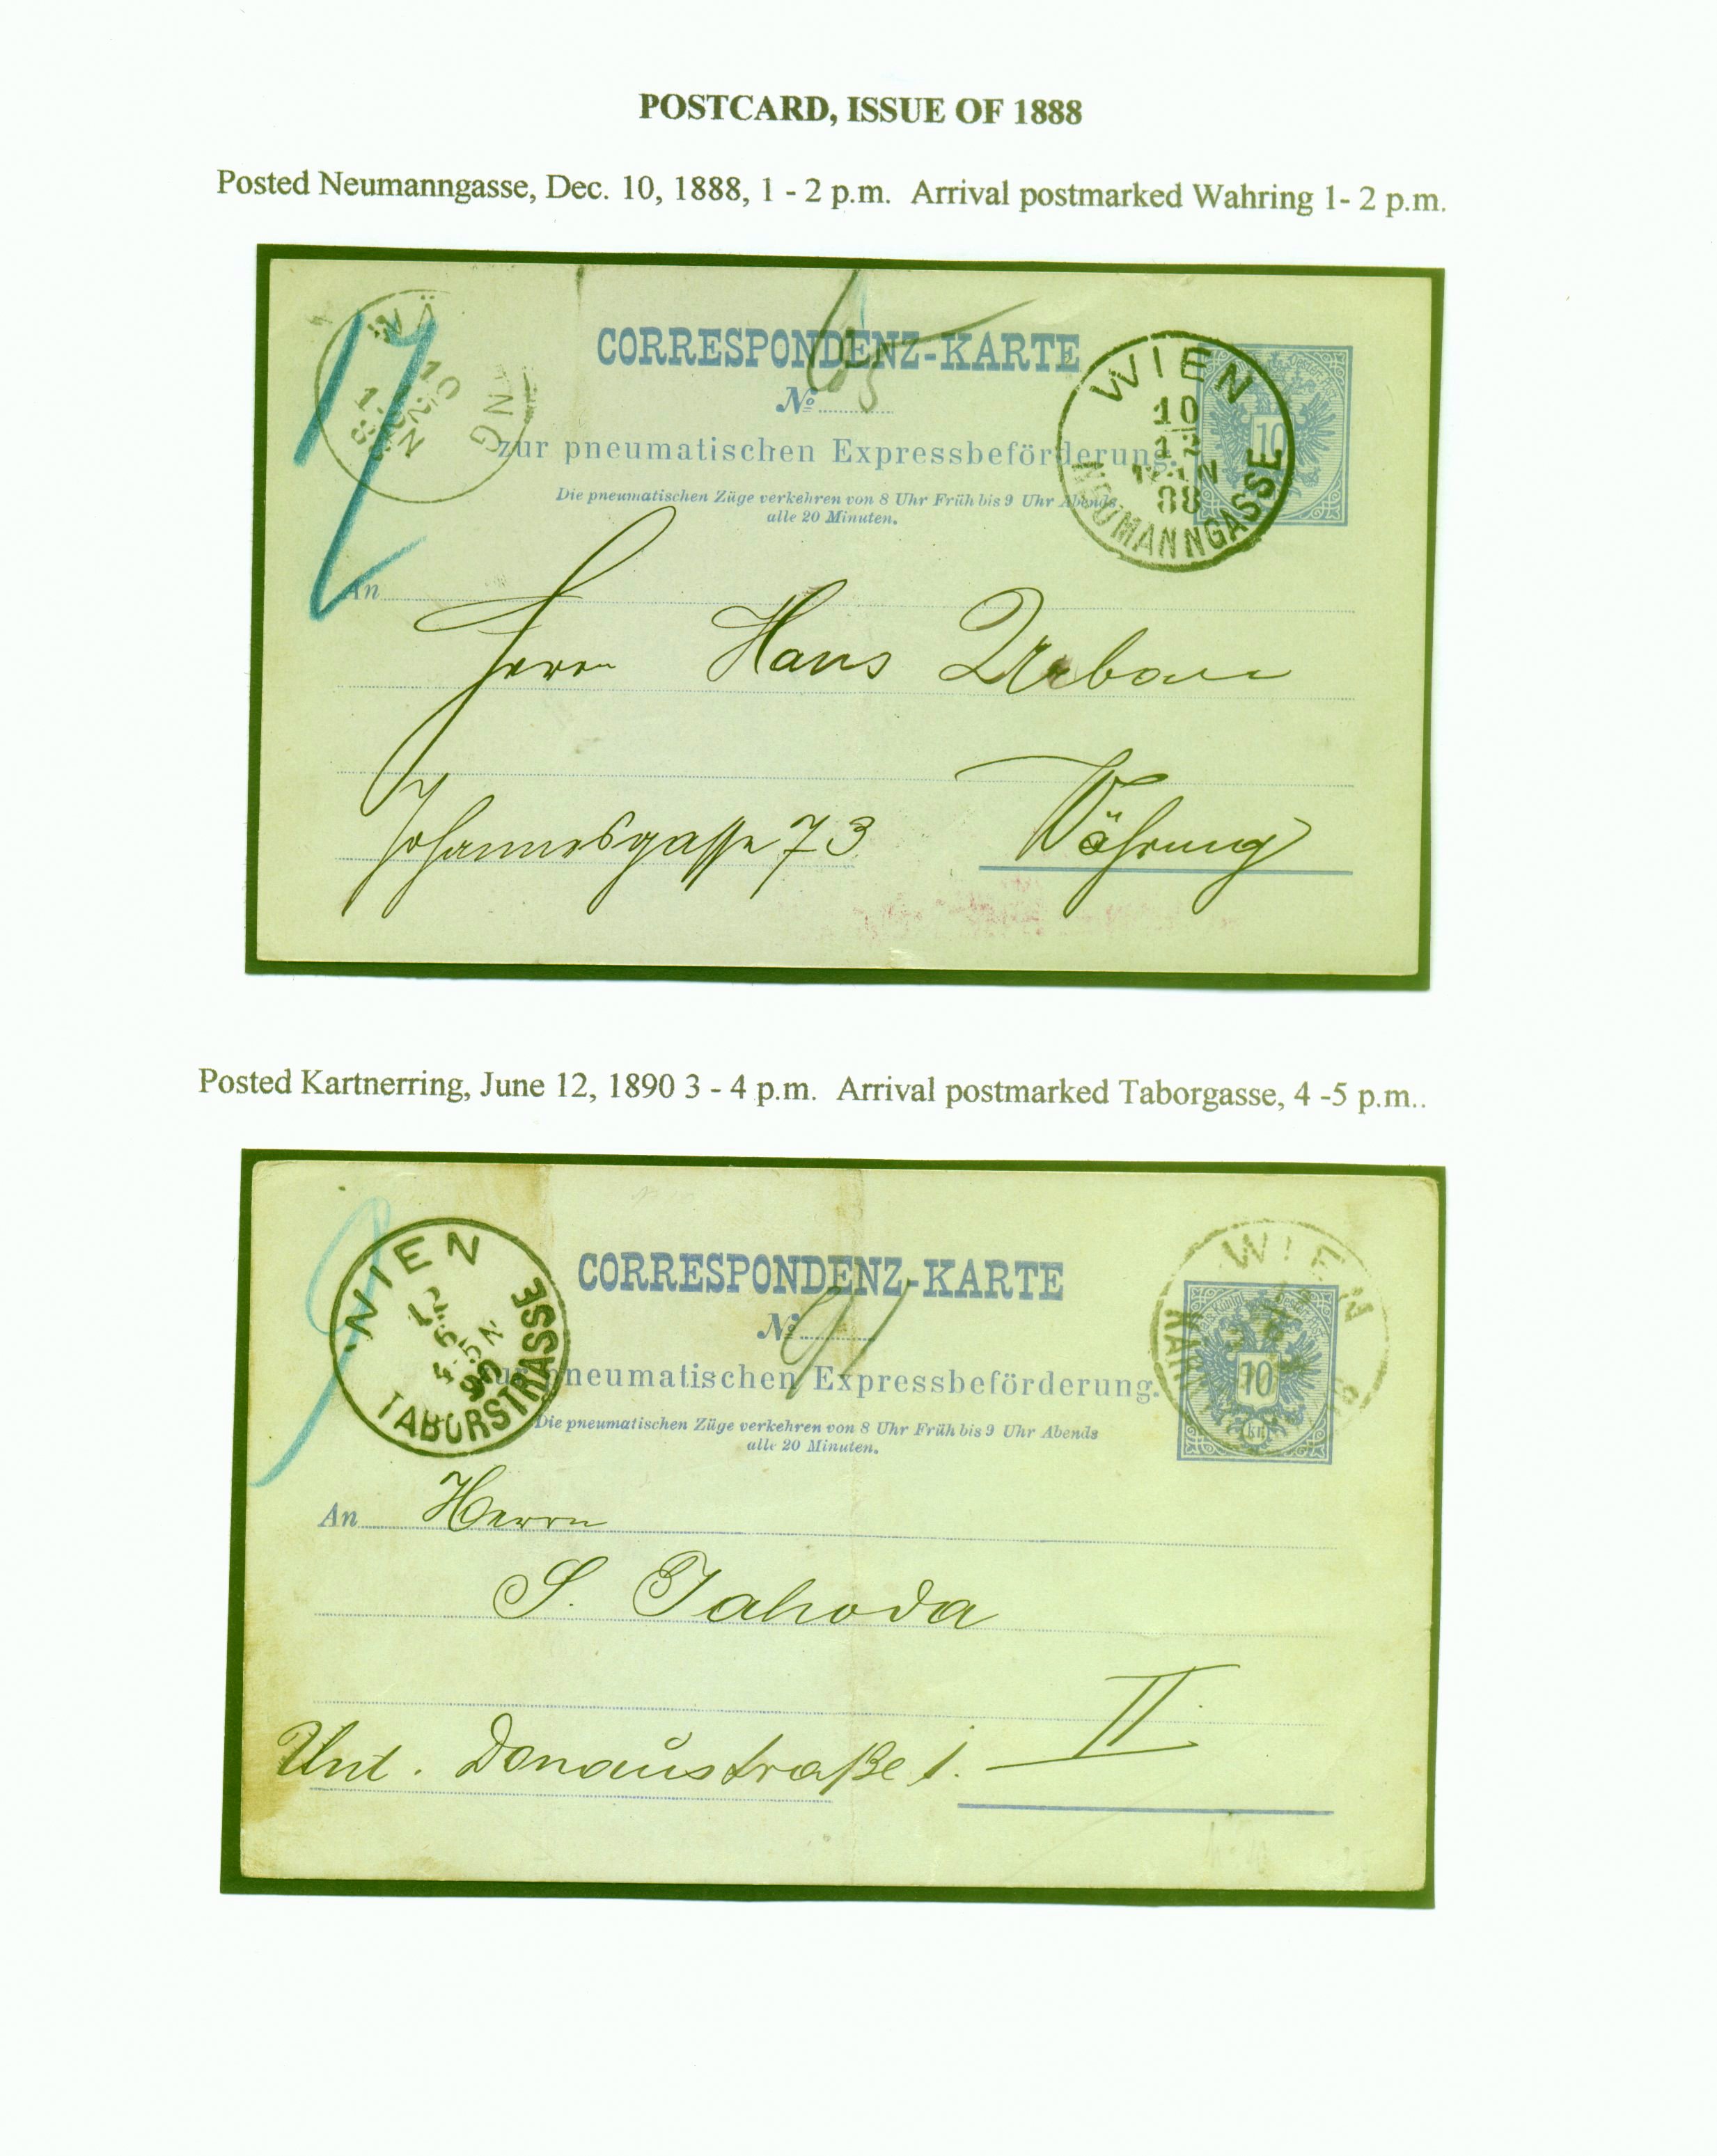 POSTCARD, ISSUE OF 1888
Posted Neumanngasse, Dec. 10, 1888, 1 - 2 p.m. Arrival postmarked Wahring 1- 2 p.m.
WÄ NG
10
CORRESPONDENZ-KARTE
No
zur pneumatischen Expressbeförderung.
Die pneumatischen Züge verkehren von 8 Uhr Früh bis 9 Uhr Abends
alle 20 Minuten.
WIEN
10
12
88
NEUMANNGASSE
10
An
Herrn Hans Urban
Johannesgasse 73 Währing
Posted Kartnerring, June 12, 1890 3 - 4 p.m. Arrival postmarked Taborgasse, 4 -5 p.m..
WIEN
90
TABORSTRASSE
CORRESPONDENZ-KARTE
No
91
zur pneumatischen Expressbeförderung.
Die pneumatischen Züge verkehren von 8 Uhr Früh bis 9 Uhr Abends
alle 20 Minuten.
WIEN
10
kr
An Herrn
S. Jahoda
II.
Unt. Donaustraße 1.